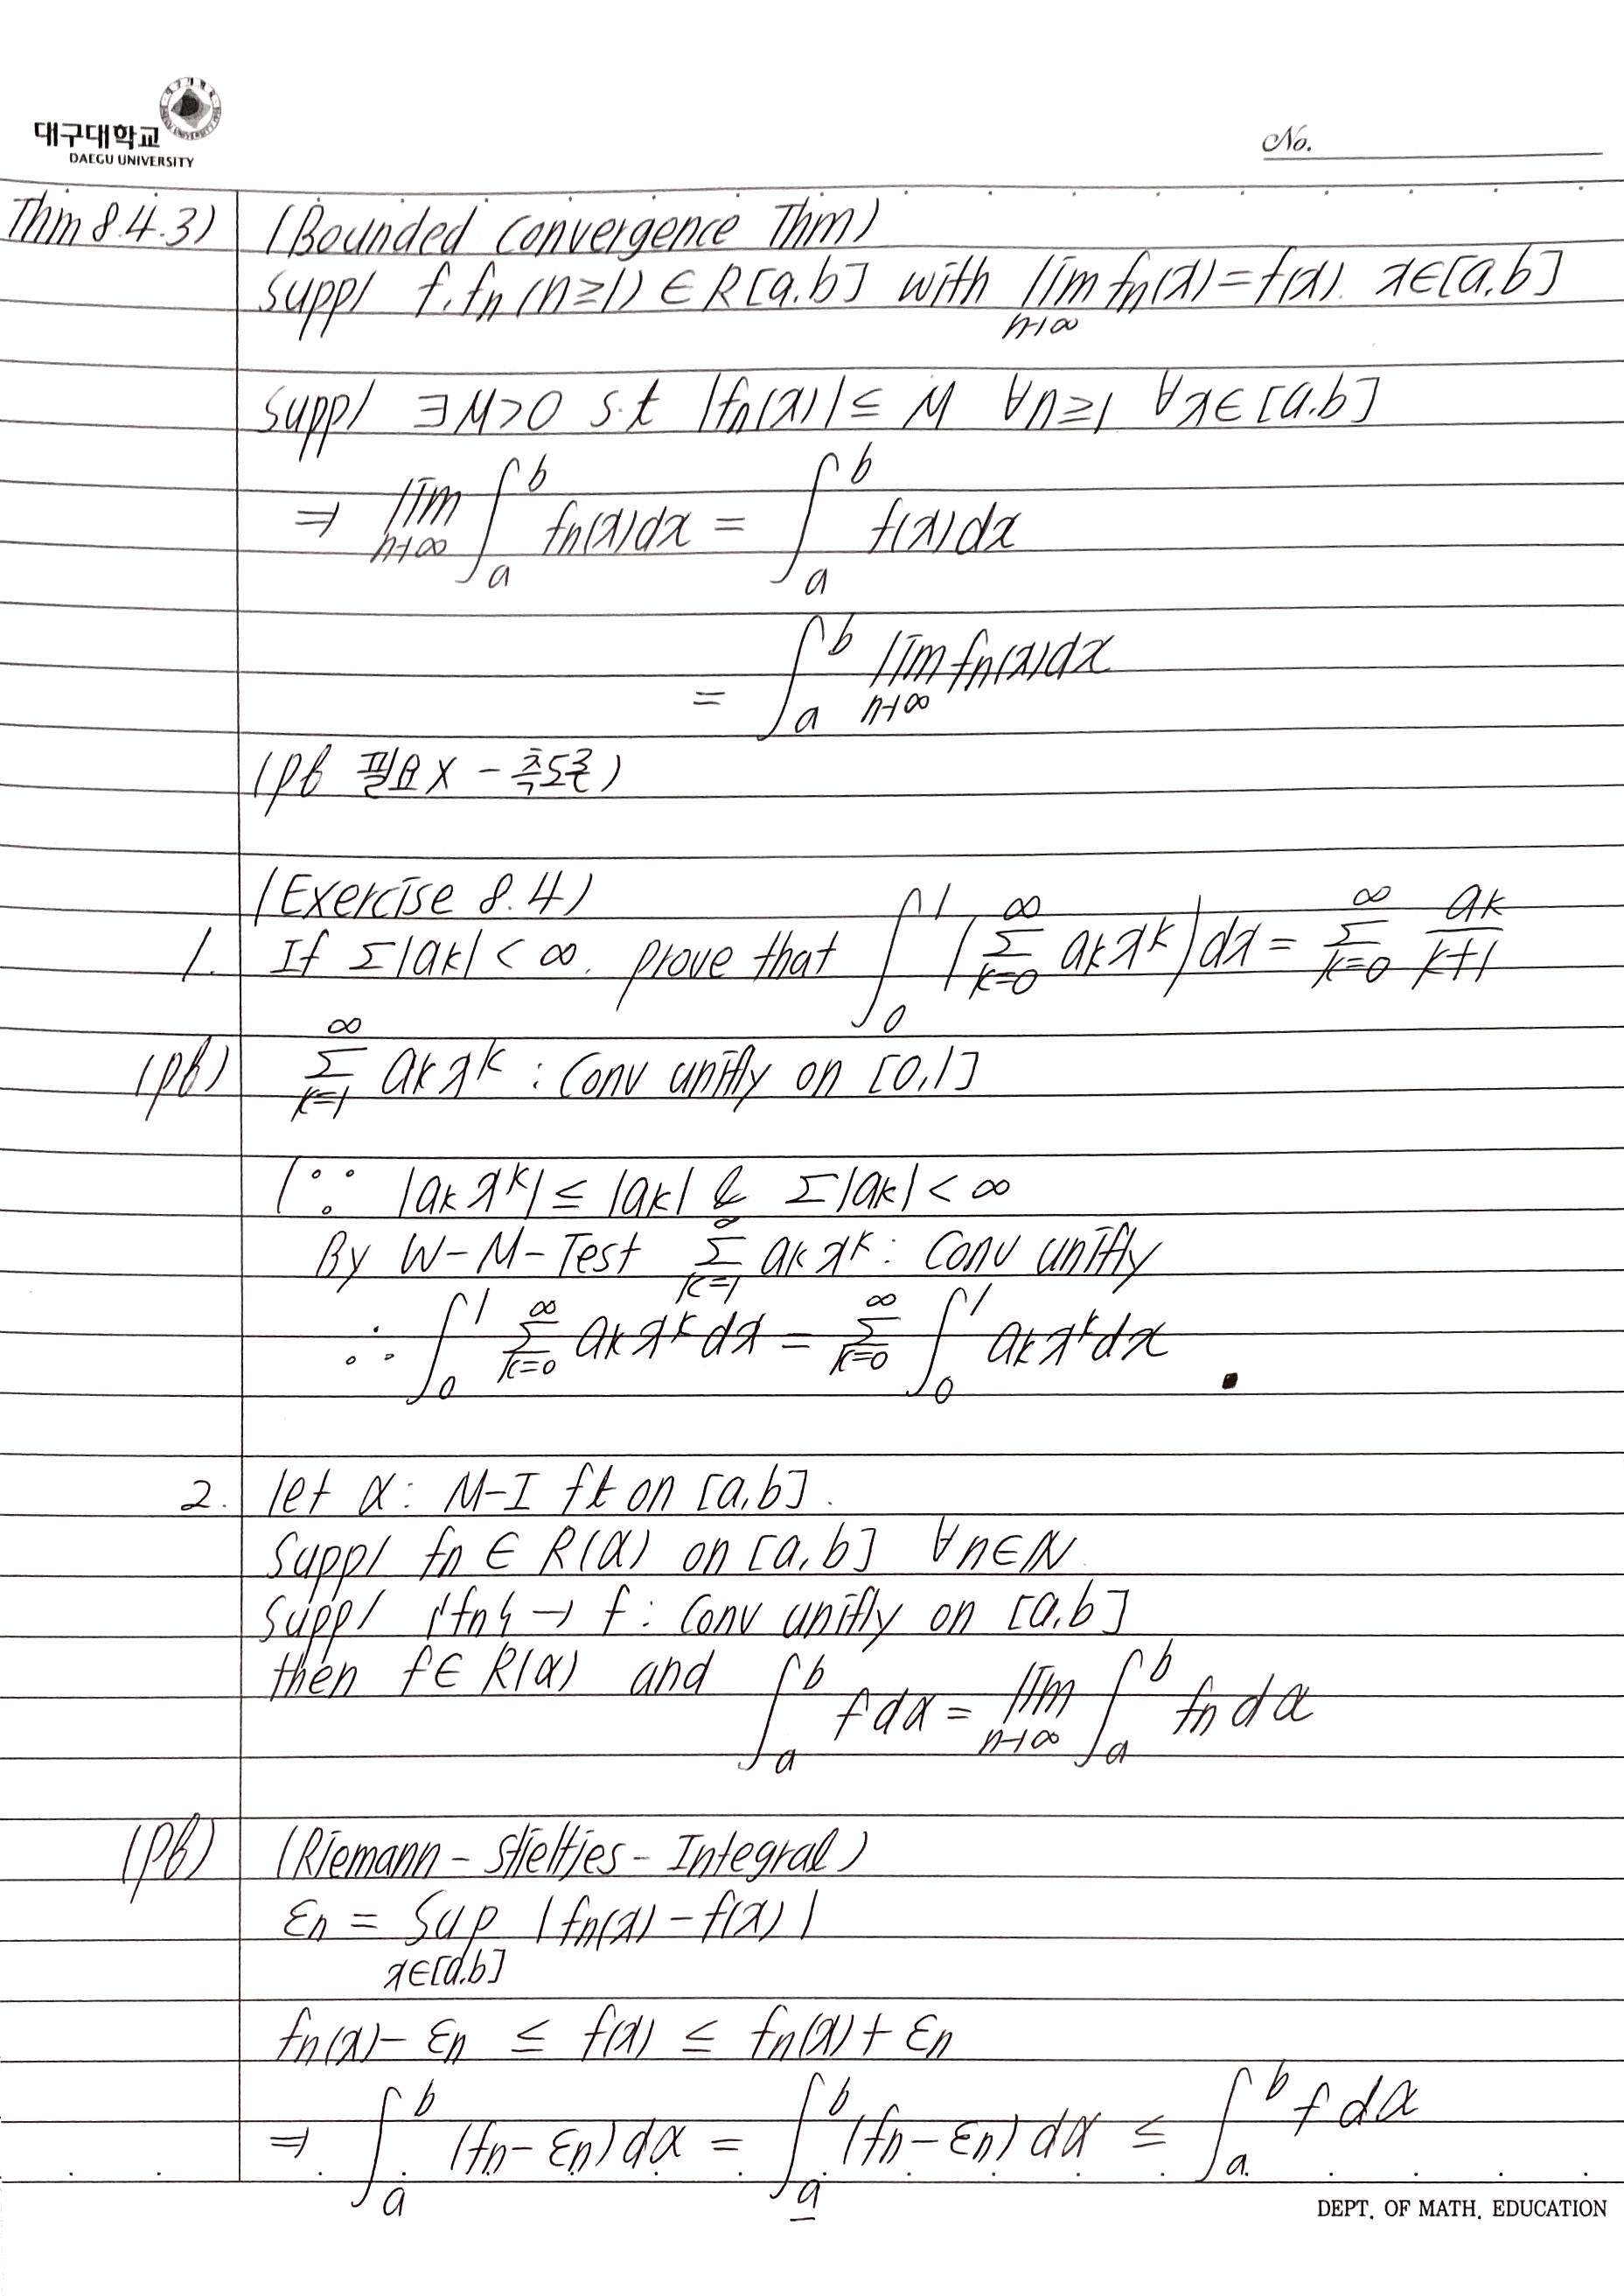 대구대학교
DAEGU UNIVERSITY
No.
Thm 8.4.3) (Bounded Convergence Thm)
Suppl f, fn (n≥1) ∈ R[a,b] with lim n→∞ fn(x) = f(x), x∈[a,b]
Suppl ∃M>0 s.t |fn(x)| ≤ M ∀n≥1, ∀x∈[a,b]
⇒ lim n→∞ ∫_a^b fn(x)dx = ∫_a^b f(x)dx
= ∫_a^b lim n→∞ fn(x)dx
(pf 필요X - 측도론)
(Exercise 8.4)
1. If Σ|ak| < ∞, prove that ∫_0^1 (Σ_{k=0}^∞ ak x^k) dx = Σ_{k=0}^∞ ak/(k+1)
(pf) Σ_{k=1}^∞ ak x^k : Conv unifly on [0,1]
(∵ |ak x^k| ≤ |ak| & Σ|ak| < ∞
By W-M-Test Σ_{k=1}^∞ ak x^k : Conv unifly
∴ ∫_0^1 Σ_{k=0}^∞ ak x^k dx = Σ_{k=0}^∞ ∫_0^1 ak x^k dx ▪
2. let α : M-I ft on [a,b].
Suppl fn ∈ R(α) on [a,b] ∀n∈N
Suppl {fn} → f : Conv unifly on [a,b]
then f∈R(α) and ∫_a^b f dα = lim n→∞ ∫_a^b fn dα
(pf) (Riemann - Stieltjes - Integral)
εn = Sup x∈[a,b] |fn(x) - f(x)|
fn(x) - εn ≤ f(x) ≤ fn(x) + εn
⇒ ∫_a^b (fn - εn) dα = ∫_a^b (fn - εn) dα ≤ ∫_a^b f dα
DEPT. OF MATH. EDUCATION